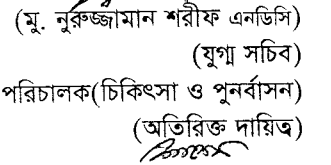 (মু. নুরুজ্জামান শরীফ এনডিসি)
(যুগ্ম সচিব)
পরিচালক(চিকিৎসা ও পুনর্বাসন)
(অতিরিক্ত দায়িত্ব)